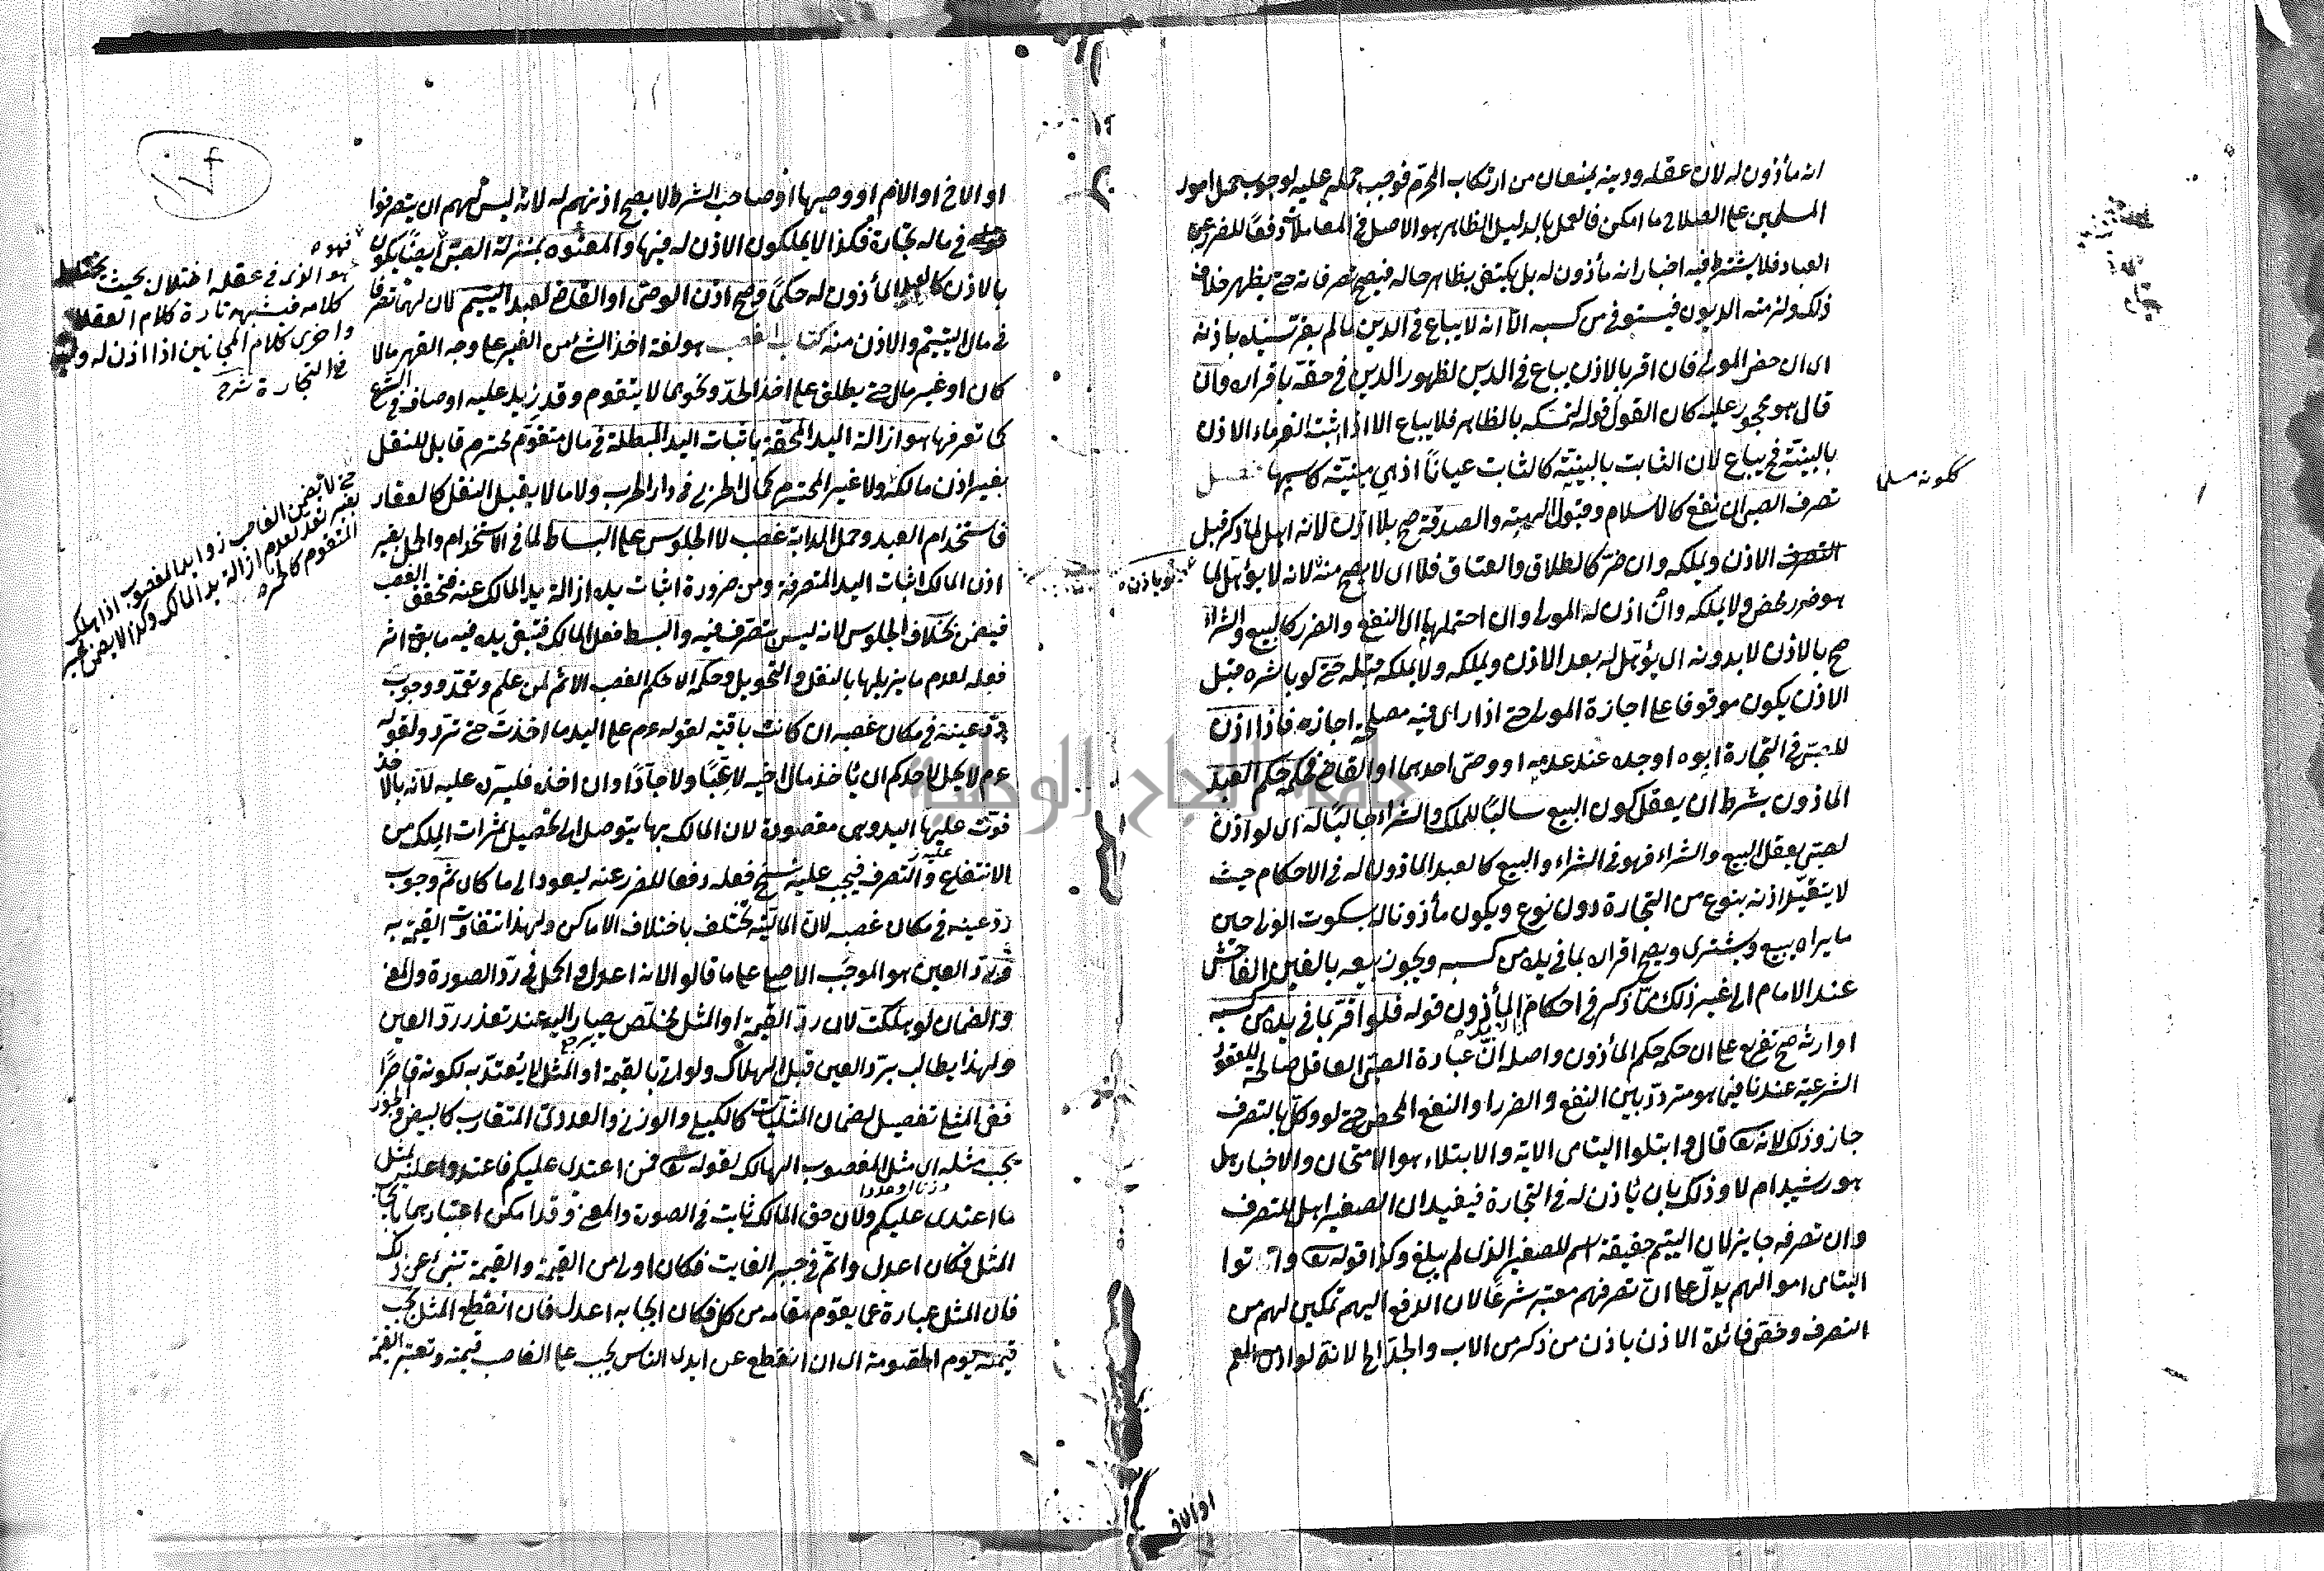 انه مأذون له لان عقله ودينه يمنعان من ارتكاب المحرّم فوجب حمله عليه لوجوب حمل امور
المسلمين على الصلاح ما امكن فالعمل بالدليل الظاهر هو الاصل في المعاملات دفعًا للضرر عن
العباد فلا يشترط فيه اخبارانه مأذون له بل يكتفى بظاهر حاله فيصح تصرفاته حتى يظهر خلاف
ذلك ولزمته الديون فيستوفى من كسبه الّا انه لا يباع في الدين ما لم يقر سيده باذنه
اى ان حضر المولى فان اقر بالاذن يباع في الدين لظهور الدين في حقه باقراره وان
قال هو محجور عليه كان القول قوله لتمسكه بالظاهر فلا يباع الا اذا اثبت الغرماء الاذن
بالبينة فح يباع لان الثابت بالبينة كالثابت عيانًا اذ هي مبيّنة كاسمها فصل
تصرف الصبي ان نفع كالاسلام وقبول الهبة والصدقة صح بلا اذن لانه اهل لما ذكر قبل
التصرف الاذن ويملكه وان ضرّ كالطلاق والعتاق فلا اى لا يصح منه لانه لا يؤهل لما
هو ضرر محض ولا يملكه وان اذن له المولى وان احتملهما اى النفع والضرر كالبيع والشراء
صح بالاذن لا بدونه اى يؤهل له بعد الاذن ويملكه ولا يملكه قبله حتى لو باشره قبل
الاذن يكون موقوفا على اجازة المولى حتى اذا راى فيه مصلحة اجازه فاذا اذن
للصبي في التجارة ابوه او جده عند عدمه او وصى احدهما او القاضي فحكمه حكم العبد
الماذون بشرط ان يعقل كون البيع سالبًا للملك والشراء جالبًا له اى لو اذن
لصبي يعقل البيع والشراء فهو في الشراء والبيع كالعبد الماذون له في الاحكام حيث
لا يتقيّد اذنه بنوع من التجارة دون نوع ويكون مأذونا له بسكوت الولى حين
ما يراه يبيع ويشترى ويصح اقراره بما في يده من كسبه ويجوز بيعه بالغبن الفاحش
عند الامام الى غير ذلك ممّا ذكر في احكام المأذون قوله فلو اقرّ بما في يده من كسبه
او ارثه صح تفريع على ان حكمه حكم المأذون واصله انّ عبارة الصبي العاقل صالحة للعقود
الشرعية عندنا فيما هو متردّد بين النفع والضرر او النفع المحض حتى لو وكّل بالتصرف
جاز وذلك لانه تعالى قال وابتلوا اليتامى الاية والابتلاء هو الامتحان والاختبار هل
هو رشيد ام لا وذلك بان يأذن له في التجارة فيفيد ان الصغير اهل للتصرف
وان تصرفه جايز لان اليتيم حقيقة اسم للصغير الذى لم يبلغ وكذا قوله تعالى واتوا
اليتامى اموالهم يدلّ على انّ تصرفهم معتبر شرعًا لان الدفع اليهم تمكين لهم من
التصرف وخفى فائدة الاذن باذن من ذكر من الاب والجد الخ لانه لو اذن العم
كلونه مسلما
لو باذن
او الاخ
او الاخ او الام او وصيها او صاحب الشرط لا يصح اذنهم له لانه ليس لهم ان يتصرفوا
في ماله تجارة فكذا لا يملكون الاذن له فيها والمعتوه بمنزلة الصبي ايضًا يكون
بالاذن كالعبد المأذون له حكمًا وصح اذن الوصى او القاضي لعبد اليتيم لان لهما تصرفا
في مال اليتيم والاذن منه كتاب الغصب هو لغة اخذ الشئ من الغير على وجه القهر مالا
كان او غير مال حتى يطلق على اخذ الحرّ ونحوه مما لا يتقوم وقد زيد عليه اوصاف في الشرع
كما تعرفها هو ازالة اليد المحقّة باثبات اليد المبطلة في مال متقوّم محترم قابل للنقل
بغير اذن مالكه ولا غير المحترم كمال الحربي في دار الحرب ولا ما لا يقبل النقل كالعقار
فاستخدام العبد وحمل الدابة غصب لا الجلوس على البساط لما في الاستخدام والحمل بغير
اذن المالك اثبات اليد المتصرفة ومن ضرورة اثبات يده ازالة يد المالك عنه فتحقق الغصب
فيضمن بخلاف الجلوس لانه ليس بتصرّف فيه والبسط فعل المالك فتبقى يده فيه ما بقى اثر
فعله لعدم ما يزيلها بالنقل والتحويل وحكمه الاحكم الغصب الاثم لمن علم وتعمّد ووجوب
ردّ عينه في مكان غصبه ان كانت باقية لقوله عم على اليد ما اخذت حتى تردّ ولقوله
عم لا يحل لاحدكم ان يأخذ مال اخيه لاعبًا ولا جادًا وان اخذه فليردّه عليه لانه بالاخذ
فوّت عليها اليد وهى مقصودة لان المالك بها يتوصل الى تحصيل ثمرات الملك من
الانتفاع والتصرف فيجب عليه نسخ فعله دفعا للضرر عنه ليعود الى ما كان ثم وجوب
ردّ عينه في مكان غصبه لان المالية تختلف باختلاف الاماكن ولهذا تتفاوت القيمة به
وردّ العين هو الموجب الاصلى على ما قالوا لانه اعدل واكمل في ردّ الصورة والمعنى
والضمان لو هلكت لان ردّ القيمة او المثل مخلص يصار اليه عند تعذر ردّ العين
ولهذا يطالب بردّ العين قبل الهلاك ولو اتى بالقيمة او المثل لا يعتدّ به لكونه قاصرًا
ففى المثلى تفصيل لضمان المثليات كالكيلى والوزنى والعددىّ المتقارب كالبيض والجوز
يجب مثله اى مثل المغصوب الهالك لقوله تعالى فمن اعتدى عليكم فاعتدوا عليه بمثل
ما اعتدى عليكم ولان حق المالك ثابت في الصورة والمعنى وقد امكن اعتبارهما بايجاب
المثل فكان اعدل واتمّ في جبر الفايت فكان اولى من القيمة والقيمة تنبئ عن ذلك
فان المثل عبارة عما يقوم مقامه من كل فكان ايجابه اعدل فان انقطع المثل يجب
قيمته يوم الخصومة اى ان انقطع عن ايدى الناس يجب على الغاصب قيمته وتعتبر القيمة
هو الذى في عقله اختلال بحيث يختلط
كلامه فيشبه تارة كلام العقلاء
واخرى كلام المجانين اذا اذن له وليه
في التجارة شرح
حتى لا يضمن الغاصب زوايد المغصوب اذا هلك
بغير تعد لعدم ازالة يد المالك وكذا لا يضمن غير
المتقوم كالخمر